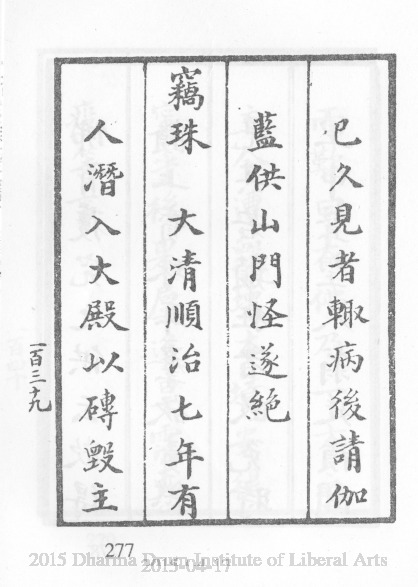 已久見者輙病後請伽
藍供山門怪遂絕
竊珠　大清順治七年有
人潛入大殿以磚毀主
一百三十九
277
2015 Dharma Drum Institute of Liberal Arts
2015-04-17